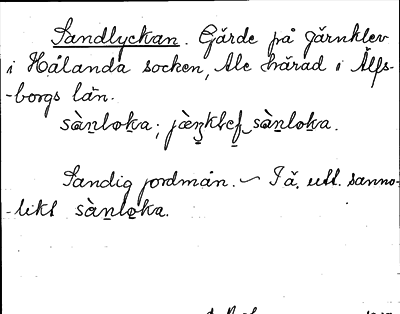 Sandlyckan. Gärde på Gärnklev
i Hålanda socken, Ale härad i Älfs-
-borgs län.
sàṉlo̱ka; jæ̀ṉklef sàṉlo̱ka.
Sandig jordmån. – I ä. utt. sanno-
-likt sàṉlo̱ka.